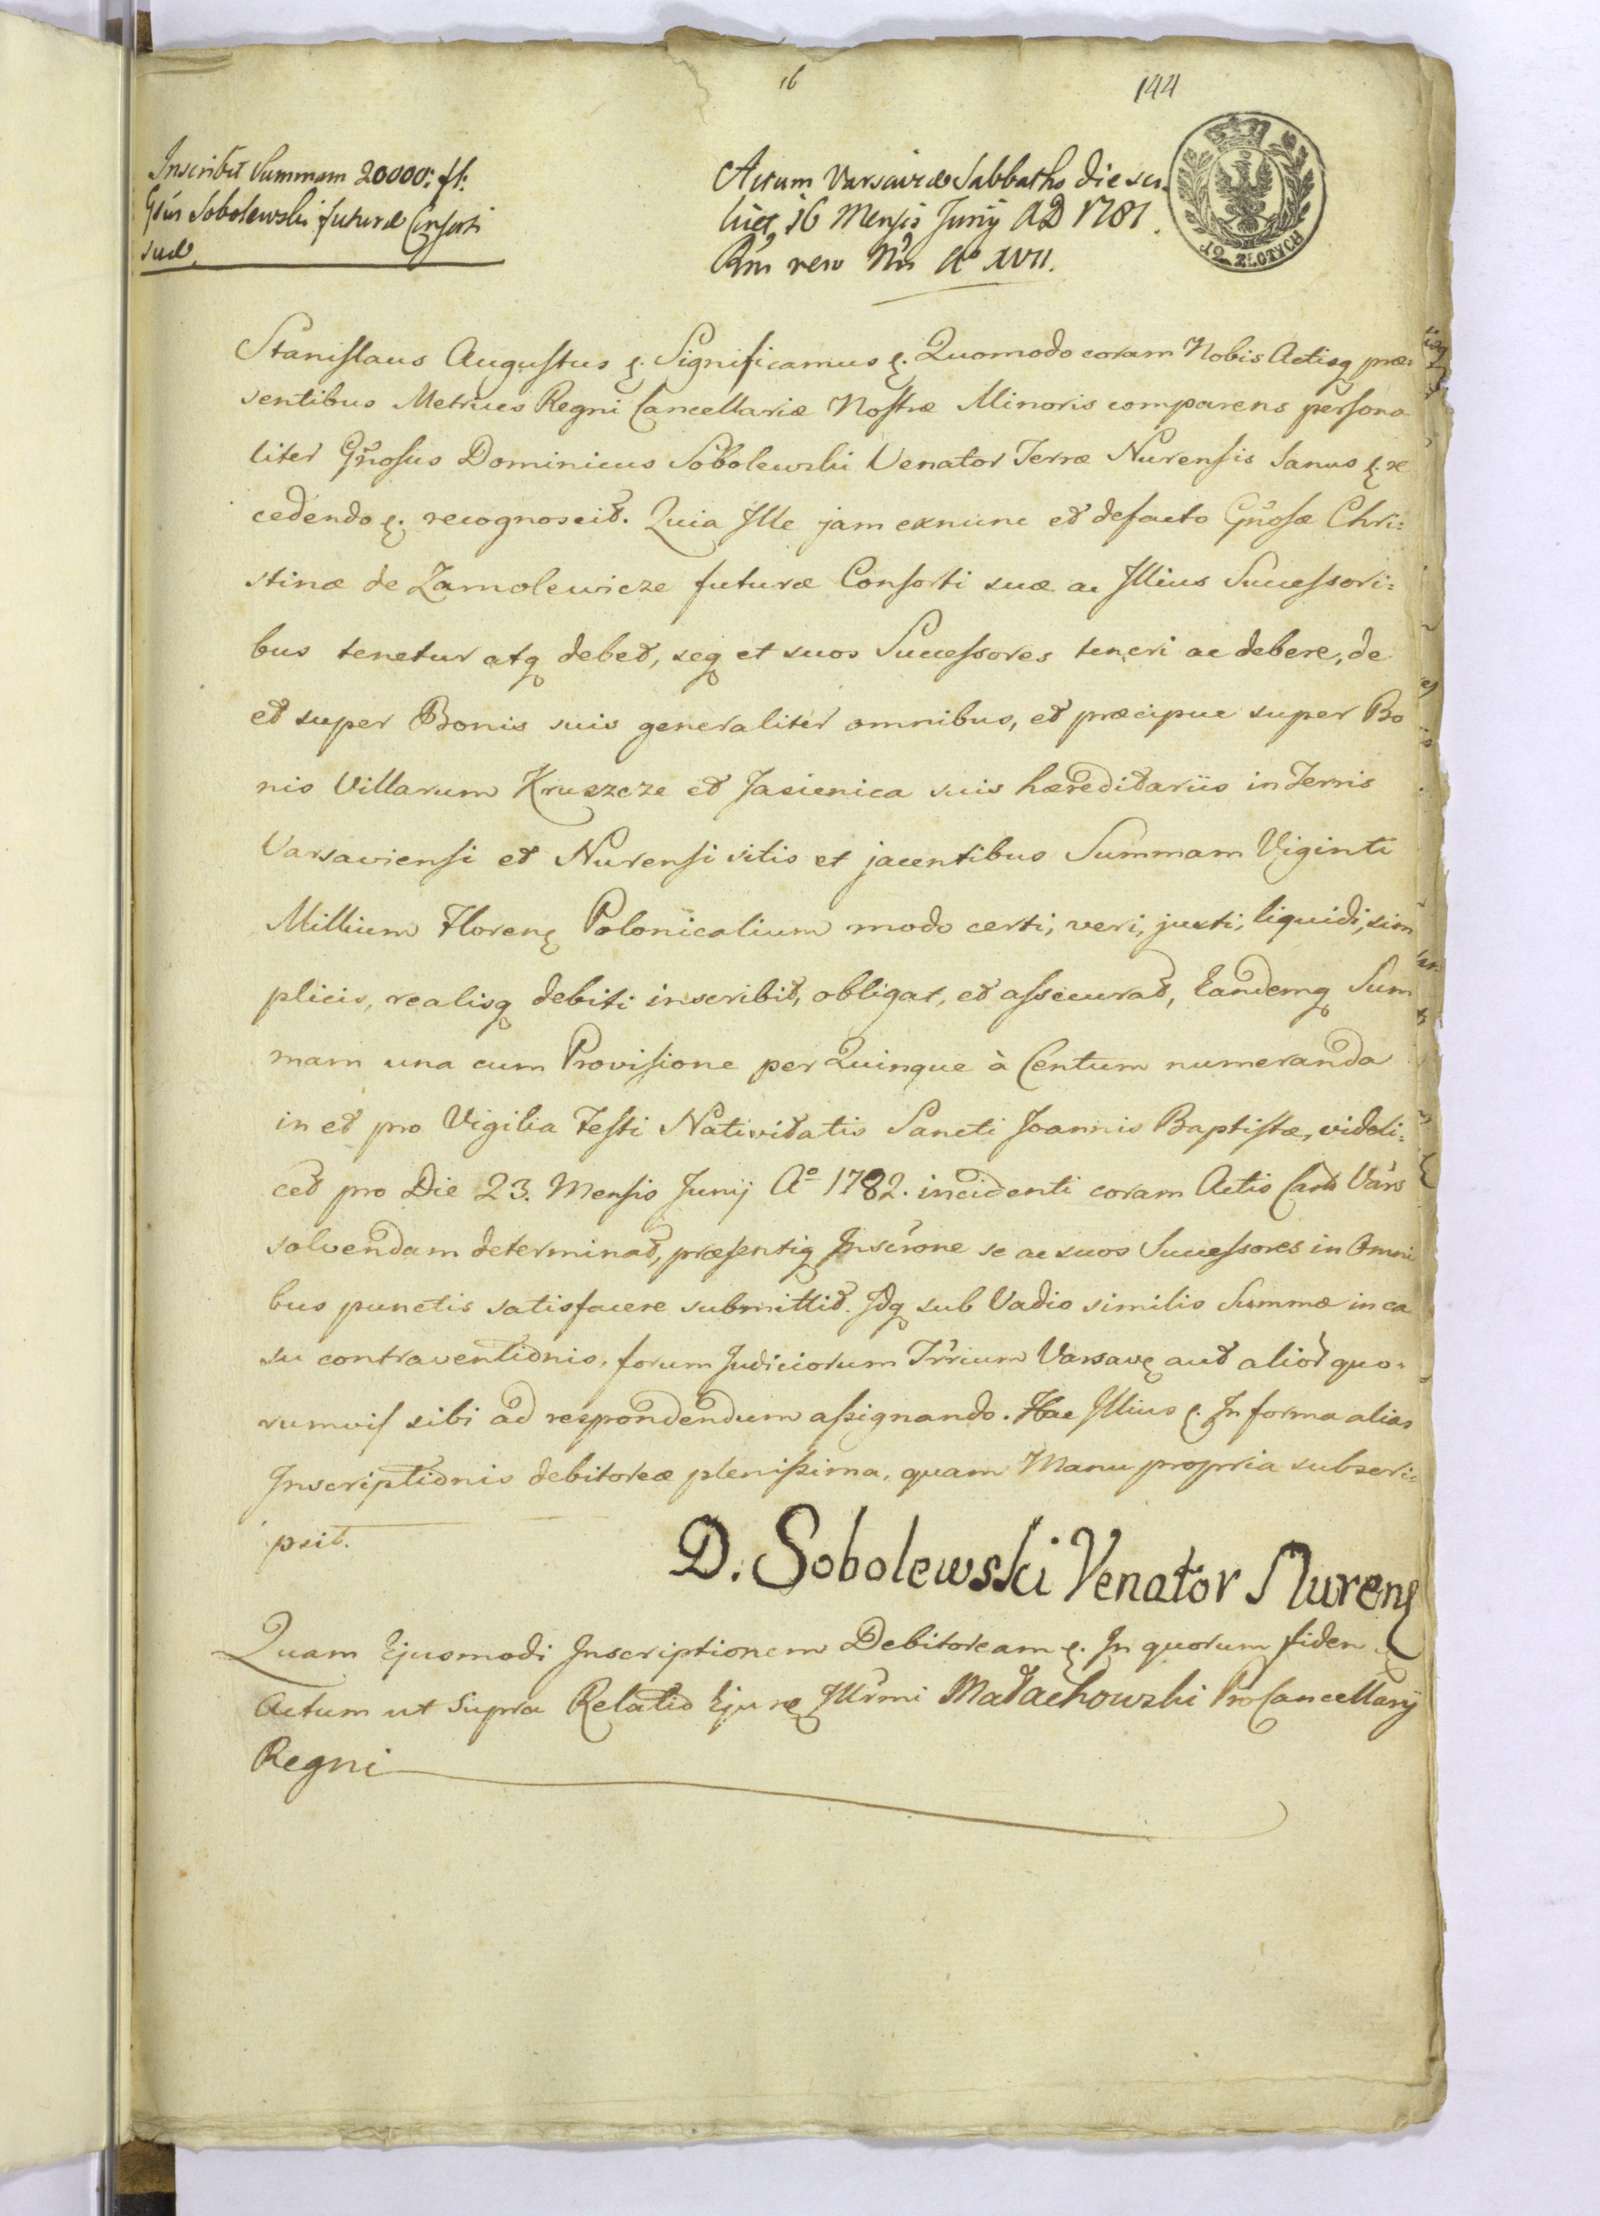 16
144
Inscribit Summam 20000: fl:
Gsus Sobolewski futuræ Consorti
suæ
Actum Varsaviæ Sabbatho die sci-
licet 16 Mensis Junij AD 1781.
Rni vero Nri Ao XVII.
12 ZŁOTYCH
Stanislaus Augustus &. Significamus &. Quomodo coram Nobis Actisq præ-
sentibus Metrices Regni Cancellariæ Nostræ Minoris comparens persona
liter Gnosus Dominicus Sobolewski Venator Terræ Nurensis Sanus &. re
cedendo &. recognoscit. Quia Ille jam exnunc et defacto Gnosæ Chri:
stinæ de Zamolewicze futuræ Consorti suæ ac Illius Successori:
bus tenetur atq debet, seq et suos Successores teneri ac debere, de
et super Bonis suis generaliter omnibus, et præcipue super Bo
nis Villarum Kruszcze et Jasienica suis hæreditariis in Terris
Varsaviensi et Nurensi sitis et jacentibus Summam Viginti
Millium Floren Polonicalium modo certi, veri, justi, liquidi, sim
plicis, realisq debiti inscribit, obligat, et assecurat, Eandemq Sum
mam una cum Provisione per Quinque à Centum numeranda
in et pro Vigilia Festi Nativitatis Sancti Joannis Baptistæ, videli:
cet pro Die 23. Mensis Junij Ao 1782. incidenti coram Actis Cast Vars
solvendam determinat, præsentiq Inscrone se ac suos Successores in Omni
bus punctis satisfacere submittit. Idq sub Vadio similis Summæ in ca
su contraventionis, forum Judiciorum Trrium Varsav aut alior quo-
rumvis sibi ad respondendum assignando. Hac Illius &. In forma alias
Inscriptionis debitoreæ plenissima, quam Manu propria subscri:
psit.
D. Sobolewski Venator Nuren
Quam Ejusmodi Inscriptionem Debitoream &. In quorum fidem &
Actum ut Supra Relatio Ejusd Illrmi Małachowski ProCancellarij
Regni